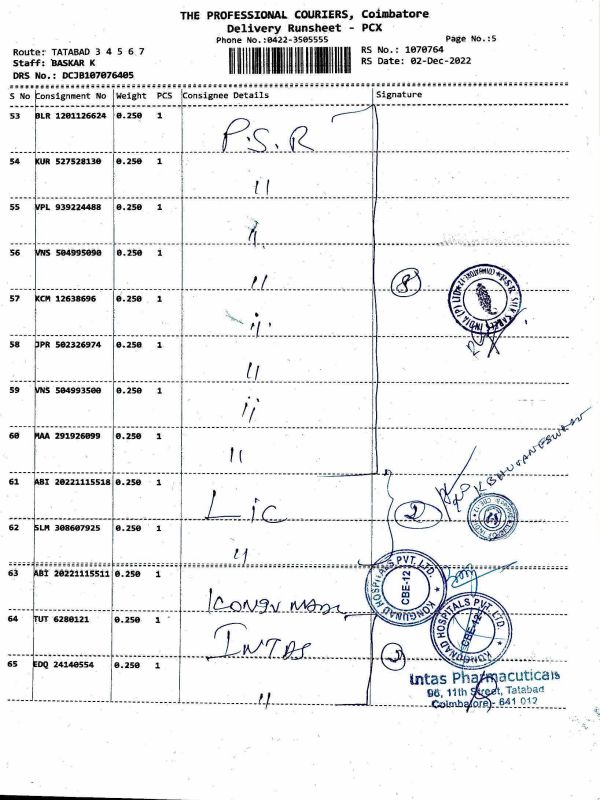 THE PROFESSIONAL COURIERS, Coimbatore
Delivery Runsheet - PCX
Phone No.:0422-3505555
Page No.:5
Route: TATABAD 3 4 5 6 7
Staff: BASKAR K
DRS No.: DCJB107076405
RS No.: 1070764
RS Date: 02-Dec-2022
S No Consignment No Weight PCS Consignee Details Signature
53 BLR 1201126624 0.250 1 P.S.R
54 KUR 527528130 0.250 1 11
55 VPL 939224488 0.250 1 11
56 VNS 504995090 0.250 1 11
8
57 KCM 12638696 0.250 1 11
58 JPR 502326974 0.250 1 11
59 VNS 504993500 0.250 1 11
60 MAA 291926099 0.250 1 11
K BHUVANESWARI
61 ABI 20221115518 0.250 1 LIC
2
62 SLM 308607925 0.250 1 11
63 ABI 20221115511 0.250 1
KONGUNAD HOSPITALS PVT. LTD.
CBE-12
64 TUT 6280121 0.250 1 INTAS
KONGUNAD HOSPITALS PVT. LTD.
CBE-12
65 EDQ 24140554 0.250 1 11
Intas Pharmacuticals
96, 11th Street, Tatabad
Coimbatore - 641 012